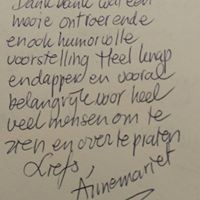 Dank dank wat een
mooie ontroerende
en ook humorvolle
voorstelling Heel knap
en dapper en vooral
belangrijk voor heel
veel mensen om te
zien en over te praten
Liefs,
Annemariet